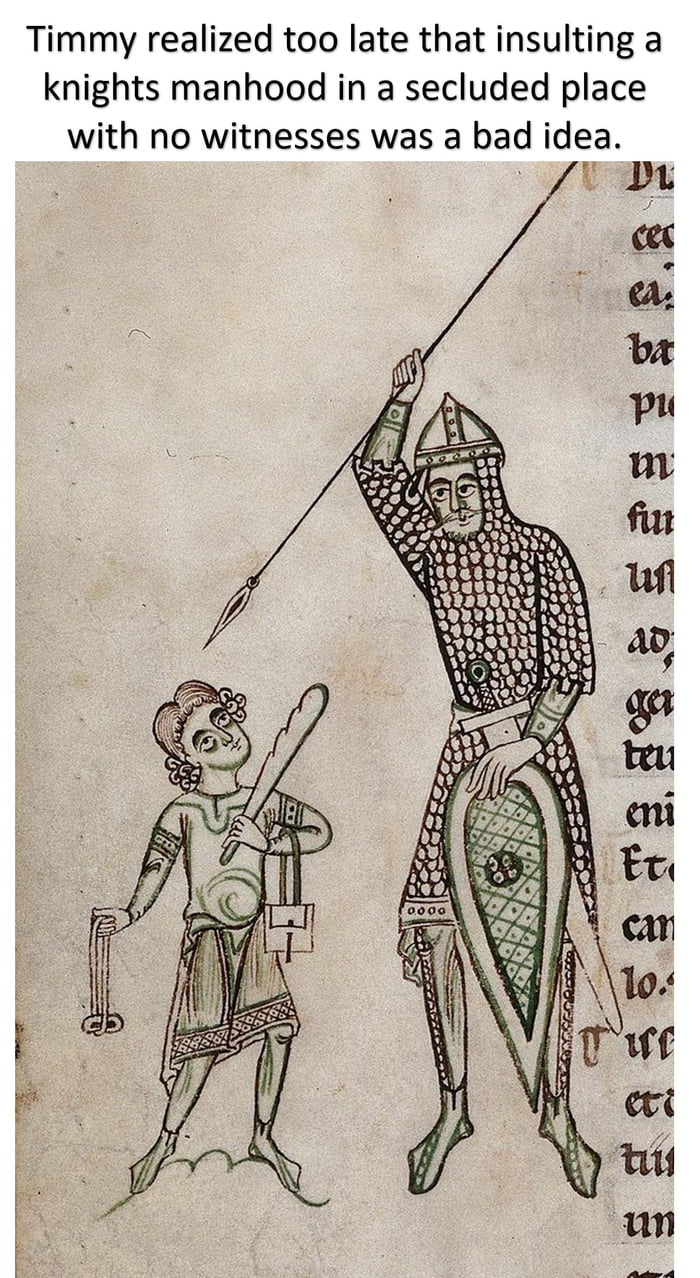 Timmy realized too late that insulting a
knights manhood in a secluded place
with no witnesses was a bad idea.
cec
ea:
ba
fur
ad
gen
eni
Et
can
lo.